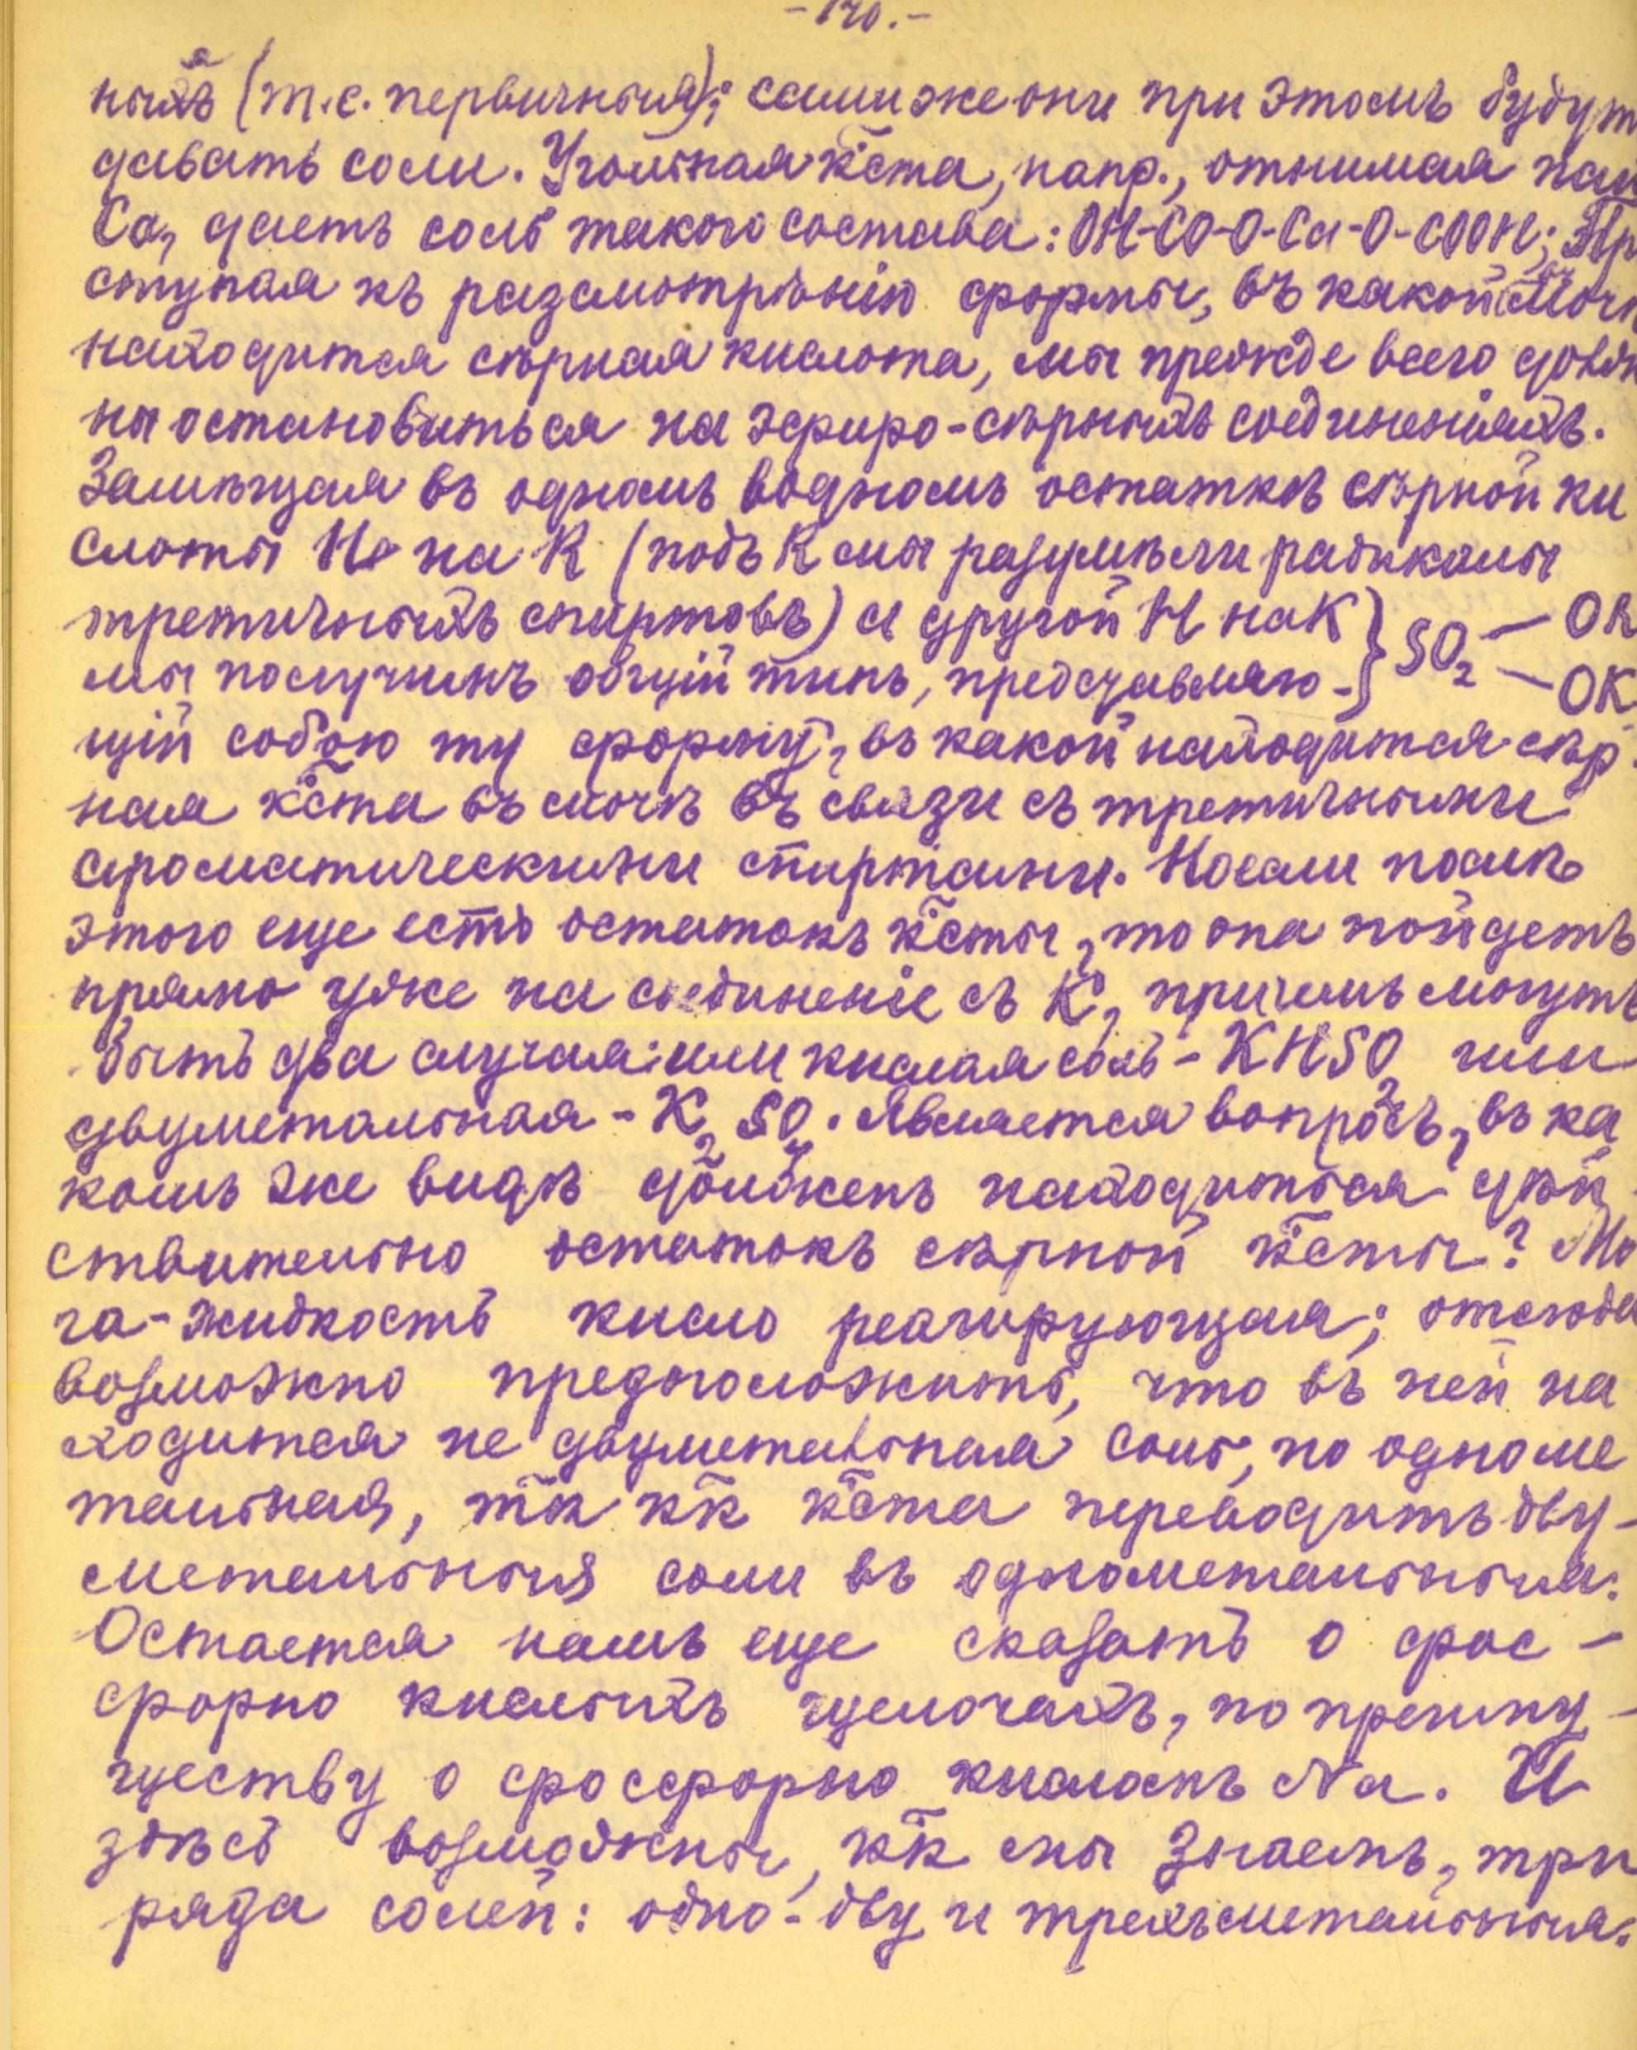 - 170. -
ныя (т.е. первичныя); сами же они при этомъ будут
давать соли. Угольная к̅с̅та, напр., отнимая
Ca, даетъ соль такого состава: OH-CO-O-Ca-O-COOH; При
ступая къ разсмотрѣнію формы, въ какой въ мочѣ
находится сѣрная кислота, мы прежде всего долж
ны остановиться на эфиро-сѣрныхъ соединеніяхъ.
Замѣщая въ одномъ водномъ остаткѣ сѣрной ки
слоты H на R (подъ R мы разумѣли радикалы
третичныхъ спиртовъ) а другой H на K } SO2 — OR
мы получимъ общій типъ, представляю- } — OK
щій собою ту форму, въ какой находится сѣр
ная к̅с̅та въ мочѣ въ связи съ третичными
ароматическими спиртами. Но если послѣ
этого еще есть остатокъ к̅с̅ты, то она пойдетъ
прямо уже на соединеніе съ K, причемъ могутъ
быть два случая: или кислая соль - KHSO2 или
двуметальная - K2SO4. Является вопросъ, въ ка
комъ же видѣ долженъ находиться дѣй
ствительно остатокъ сѣрной к̅с̅ты? Мо
ча - жидкость кисло реагирующая; отсюда
возможно предположить, что въ ней на
ходится не двуметальная соль, но одноме
тальная, т̅к̅ к̅к̅ к̅с̅та переводитъ дву-
метальныя соли въ однометальныя.
Остается намъ еще сказать о фос-
форно кислыхъ щелочахъ, по преиму-
ществу о фосфорно кисломъ Na. И
здѣсь возможны, к̅к̅ мы знаемъ, три
ряда солей: одно- дву и трехъметальныя.